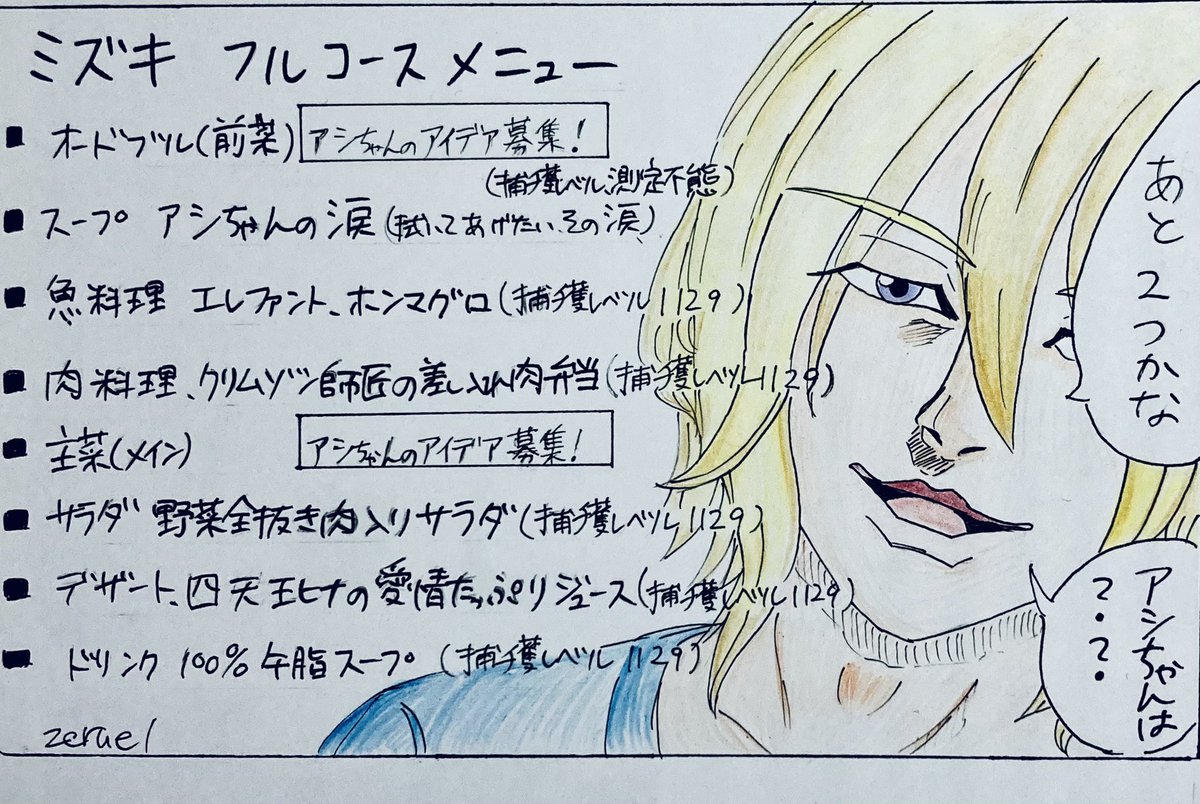 ミズキ フルコースメニュー
■ オードブツル(前菜) アシちゃんのアイデア募集!
(捕獲レベツル、測定不態)
■ スープ アシちゃんの涙(拭いてあげたい、その涙、)
■ 魚料理 エレファント、ホンマグロ(捕獲レベツル1129)
■ 肉料理、クリムゾン師匠の差し入れ肉弁当(捕獲レベツル1129)
■ 主菜(メイン) アシちゃんのアイデア募集!
■ サラダ 野菜全抜き肉入りサラダ(捕獲レベツル1129)
■ デザート、四天王ヒナの愛情たっぷりジュース(捕獲レベツル1129)
■ ドリンク 100%牛脂スープ(捕獲レベツル1129)
zeruel
あと2つかな
アシちゃんは
???